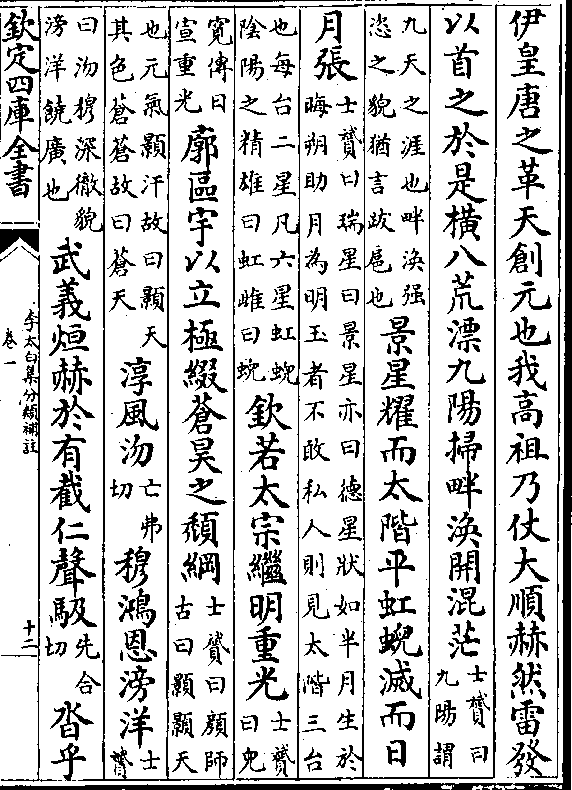 伊皇唐之革天創元也我高祖乃仗大順赫然雷發
以首之於是橫八荒漂九陽掃畔渙開混茫士贇曰九陽謂
九天之涯也畔渙强恣之貌猶言跋扈也景星耀而太階平虹蜺滅而日
月張士贇曰瑞星曰景星亦曰德星狀如半月生於晦朔助月為明玉者不敢私人則見太階三台
也每台二星凡六星虹蜺陰陽之精雄曰虹雌曰蜺欽若太宗繼明重光士贇曰兒
寛傳曰宣重光廓區宇以立極綴蒼昊之頽綱士贇曰顔師古曰顥顥天
也元氣顥汗故曰顥天其色蒼蒼故曰蒼天淳風沕亡弗切穆鴻恩滂洋士贇
曰沕穆深徹貌滂洋饒廣也武義烜赫於有截仁聲馺先合切沓乎
欽定四庫全書
李太白集分類補註
卷一
十二